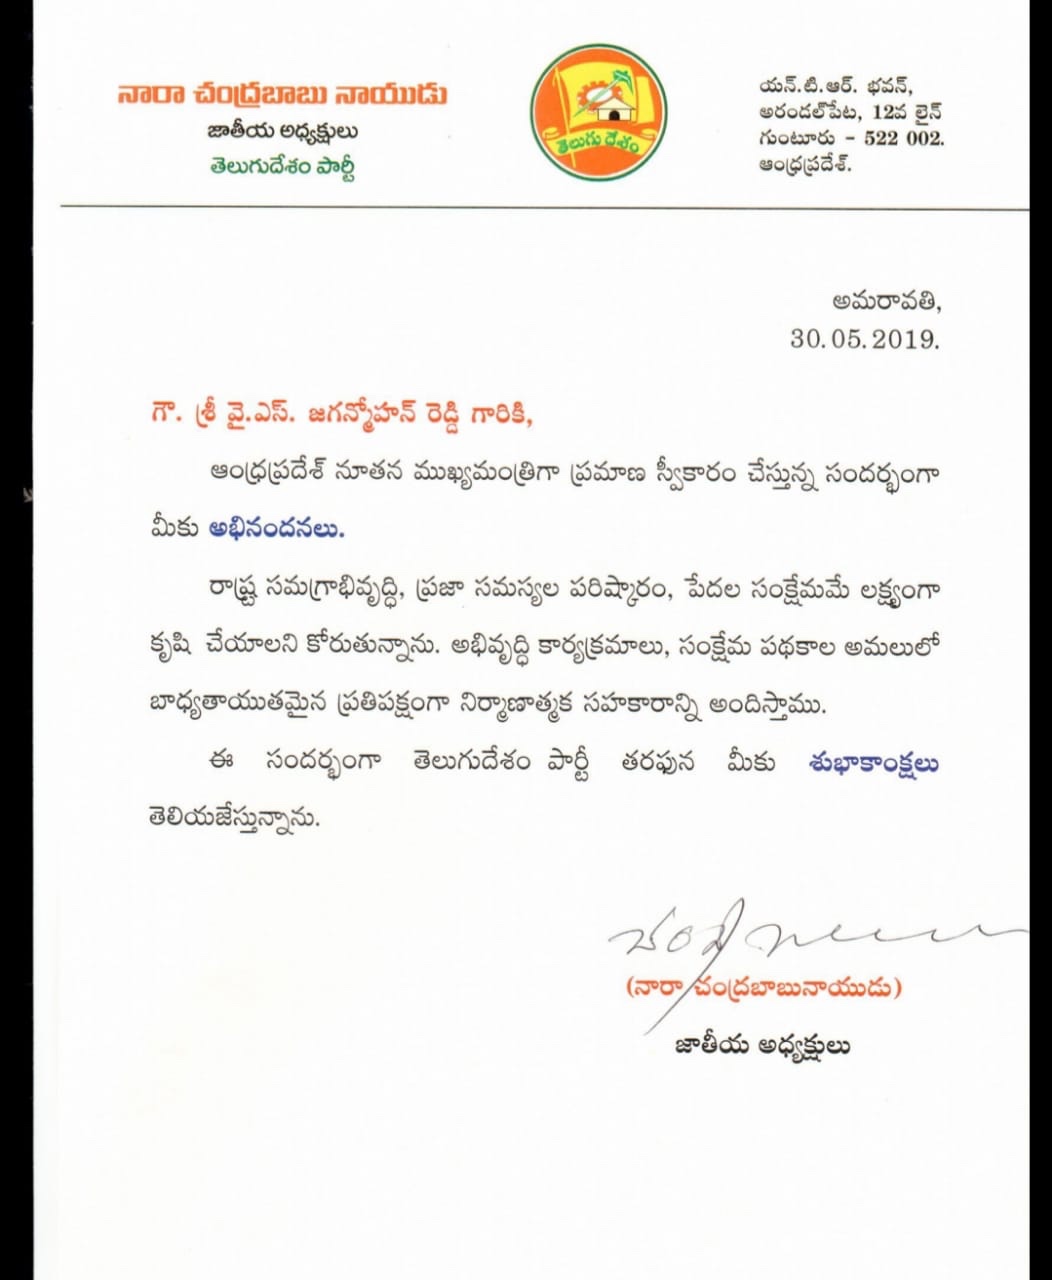 నారా చంద్రబాబు నాయుడు
జాతీయ అధ్యక్షులు
తెలుగుదేశం పార్టీ
తెలుగు దేశం
యన్.టి.ఆర్. భవన్,
అరండల్‌పేట, 12వ లైన్
గుంటూరు - 522 002.
ఆంధ్రప్రదేశ్.
అమరావతి,
30.05.2019.
గౌ. శ్రీ వై.ఎస్. జగన్మోహన్ రెడ్డి గారికి,
ఆంధ్రప్రదేశ్ నూతన ముఖ్యమంత్రిగా ప్రమాణ స్వీకారం చేస్తున్న సందర్భంగా
మీకు అభినందనలు.
రాష్ట్ర సమగ్రాభివృద్ధి, ప్రజా సమస్యల పరిష్కారం, పేదల సంక్షేమమే లక్ష్యంగా
కృషి చేయాలని కోరుతున్నాను. అభివృద్ధి కార్యక్రమాలు, సంక్షేమ పథకాల అమలులో
బాధ్యతాయుతమైన ప్రతిపక్షంగా నిర్మాణాత్మక సహకారాన్ని అందిస్తాము.
ఈ సందర్భంగా తెలుగుదేశం పార్టీ తరఫున మీకు శుభాకాంక్షలు
తెలియజేస్తున్నాను.
(నారా చంద్రబాబునాయుడు)
జాతీయ అధ్యక్షులు